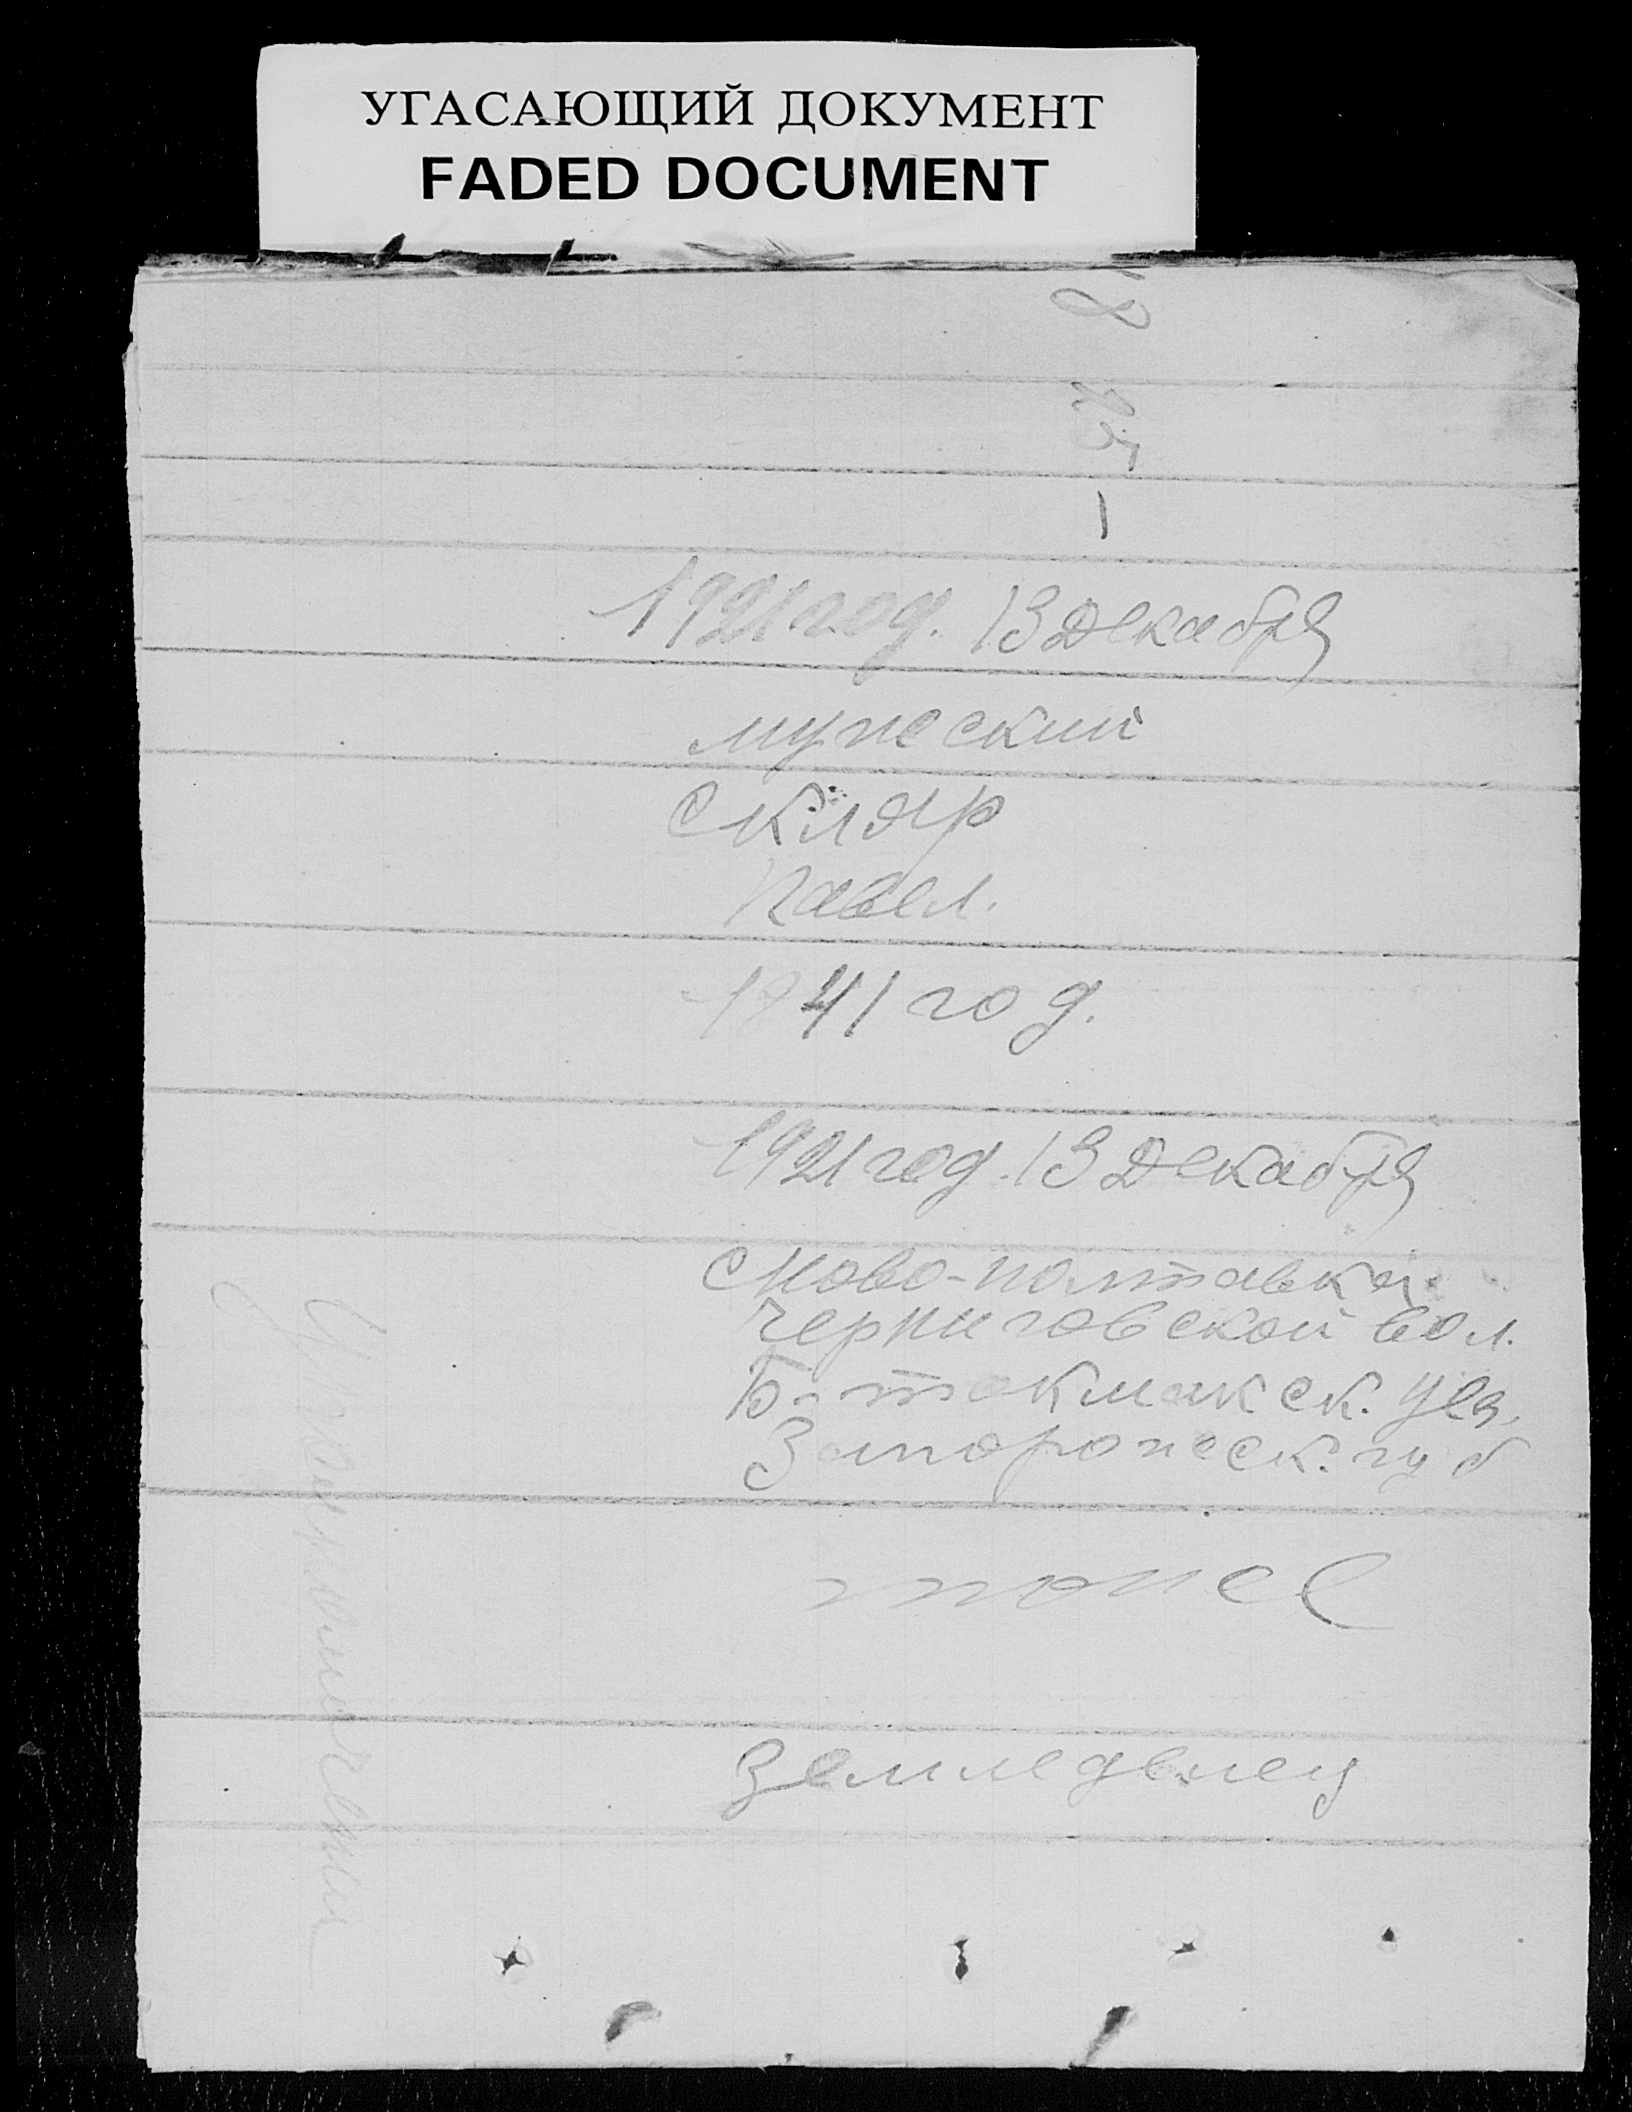 УГАСАЮЩИЙ ДОКУМЕНТ
FADED DOCUMENT
1
1921 год. 13 Декабря
мужеский
Скляр
Павел.
1841 год.
1921 год. 13 Декабря
с Ново-полтавка
Черниговской вол.
Б-токмакск. уез.
Запорожеск. губ
тоже
Земледелец